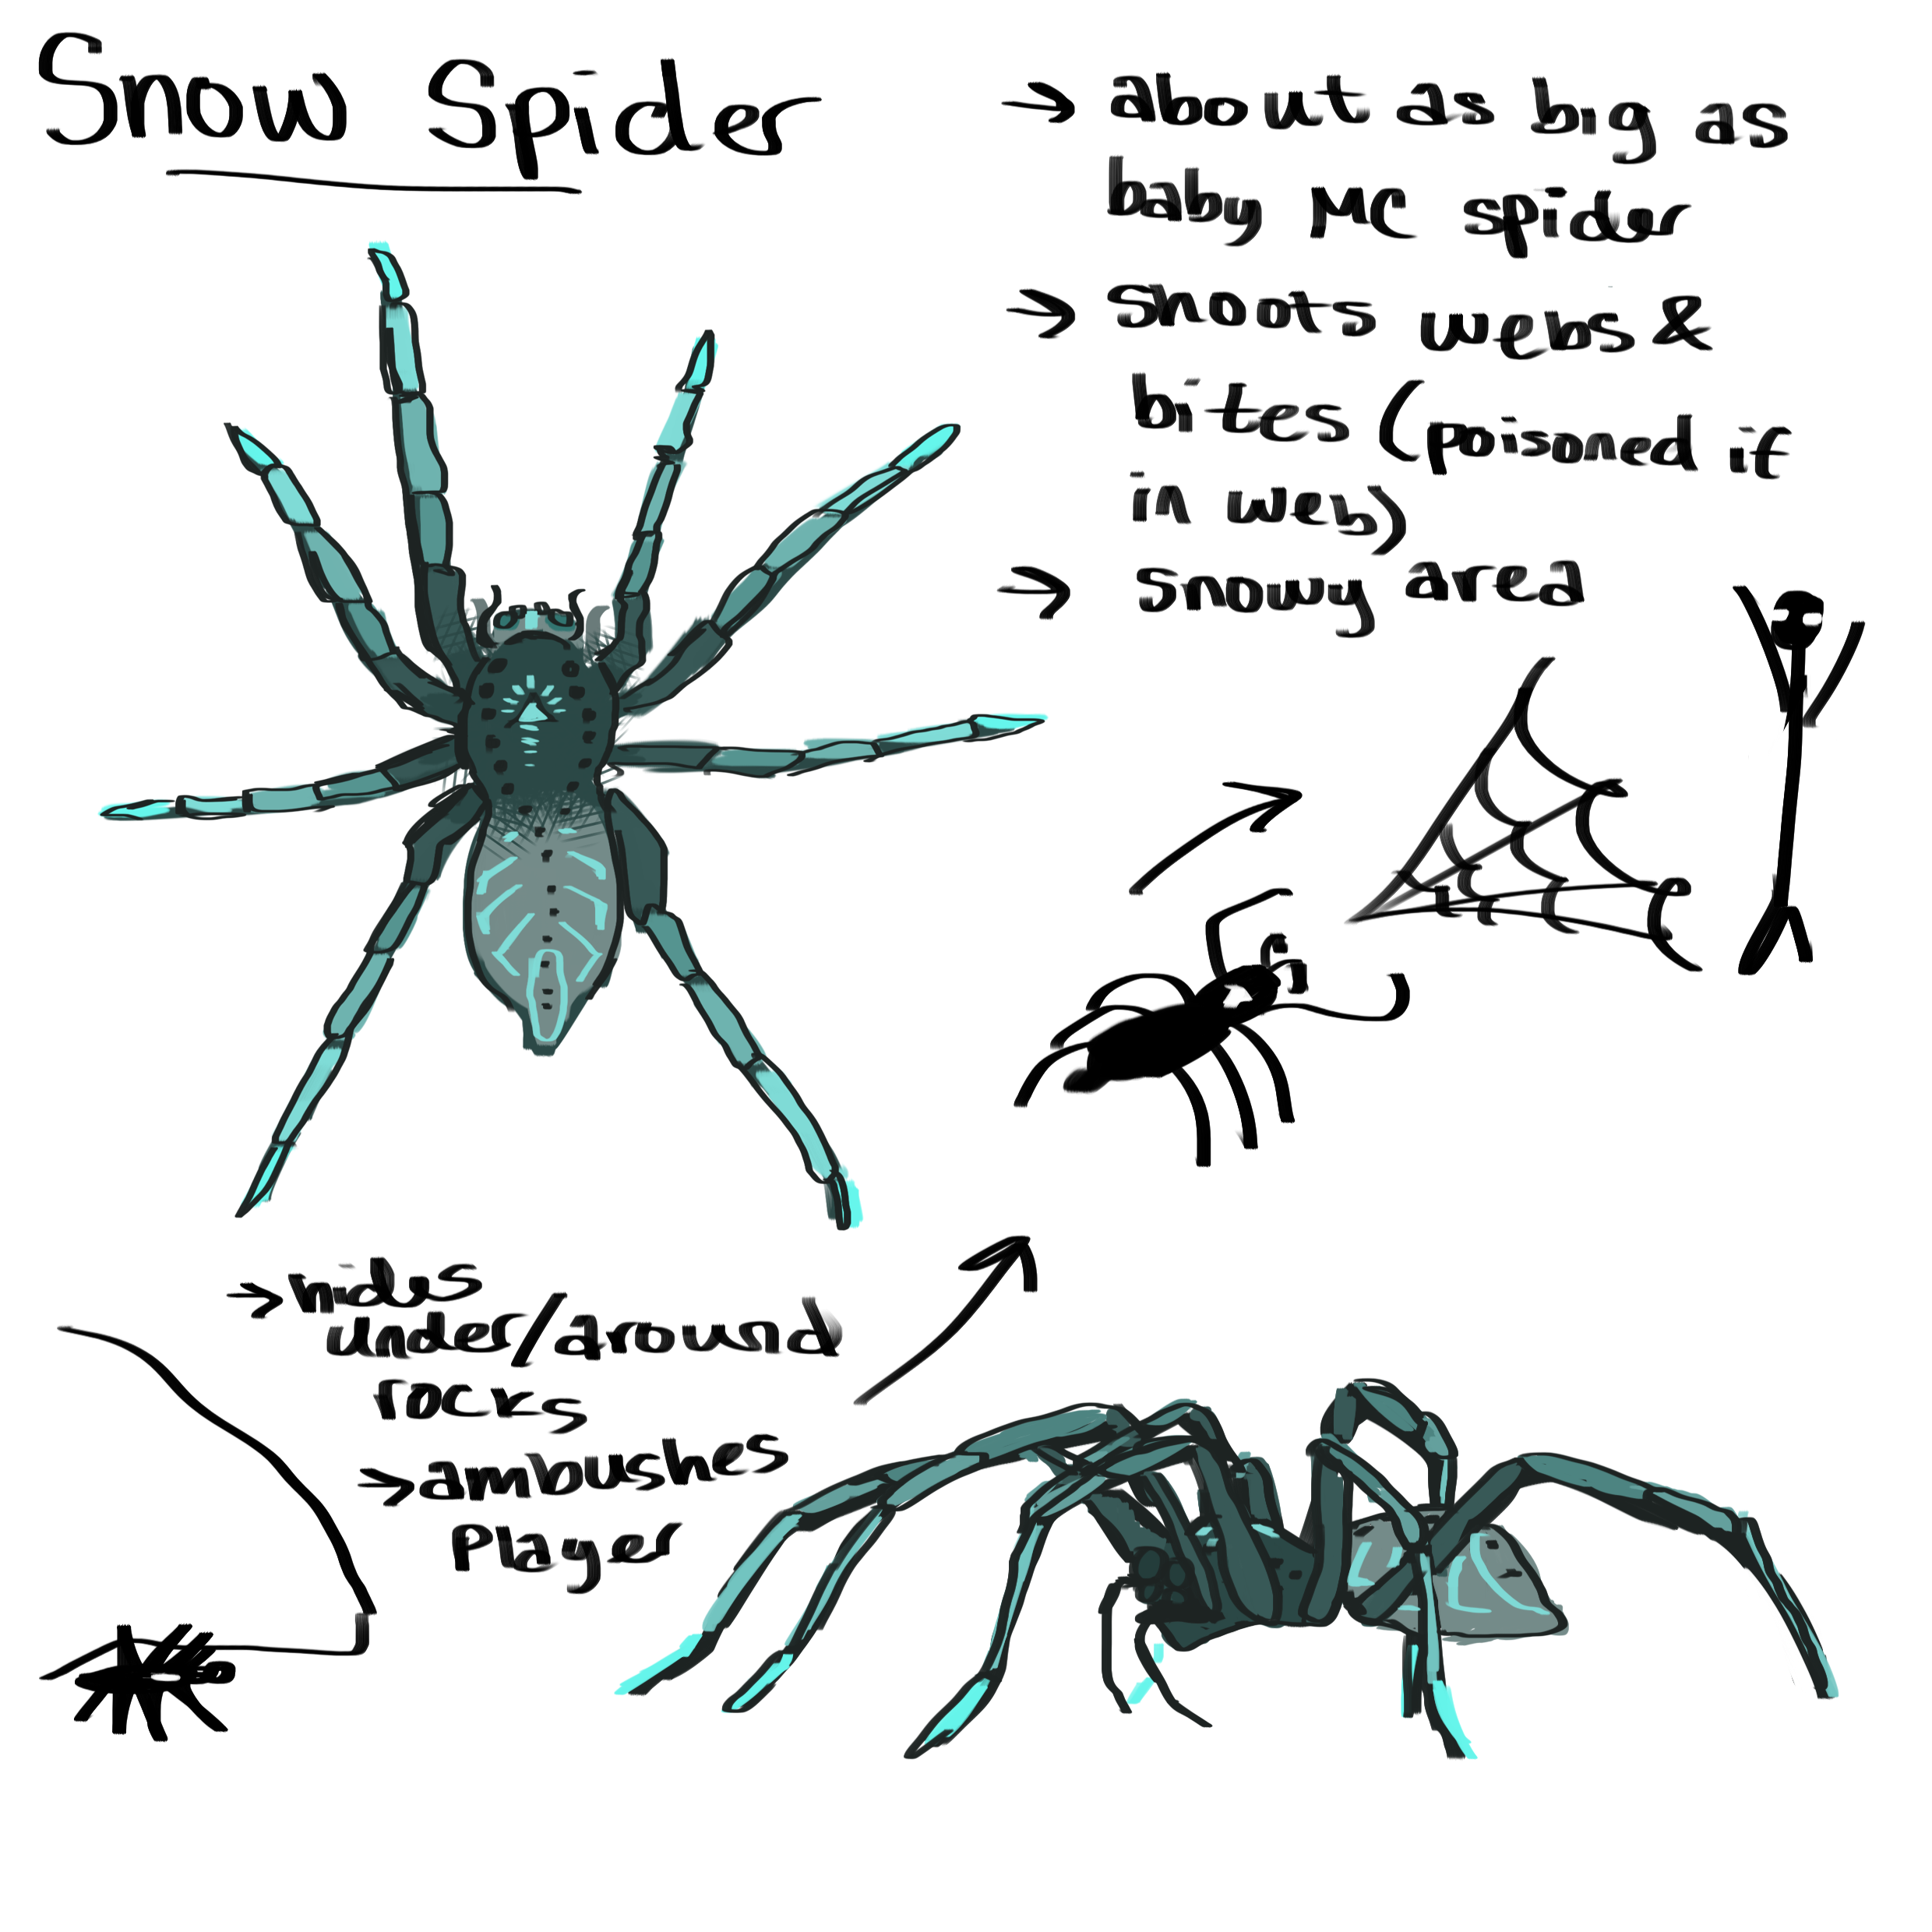 Snow Spider
→ about as big as
baby MC spider
→ shoots webs &
bites (poisoned if
in web)
→ snowy area
→ hides
under/around
rocks
→ ambushes
player